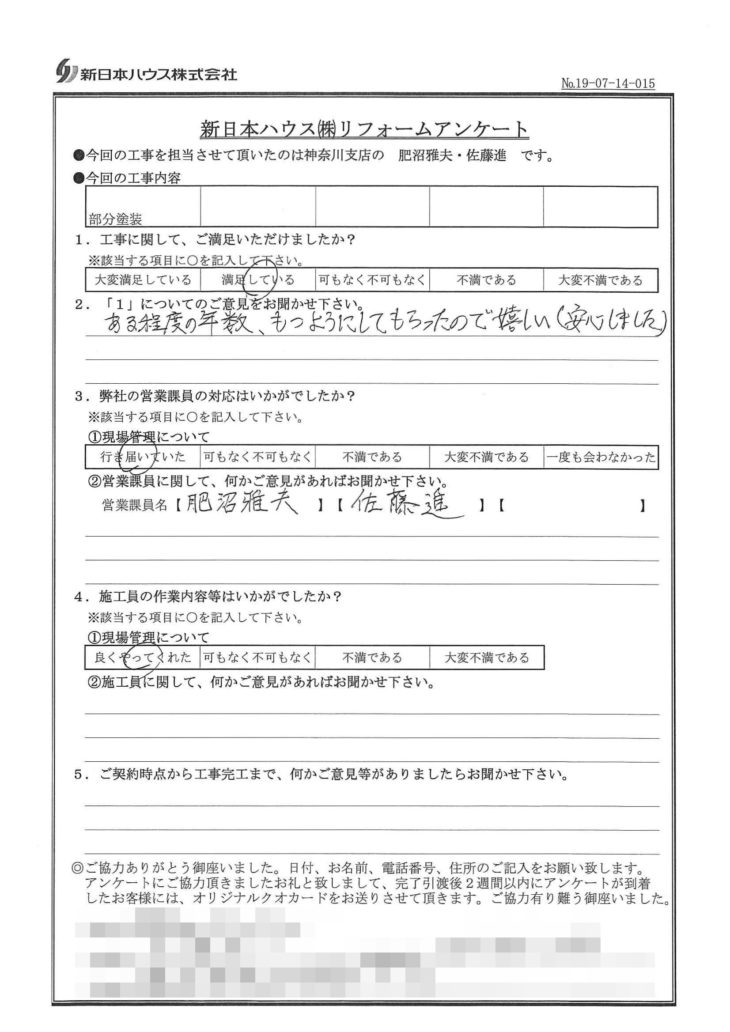 新日本ハウス株式会社
№19-07-14-015
新日本ハウス㈱リフォームアンケート
●今回の工事を担当させて頂いたのは神奈川支店の 肥沼雅夫・佐藤進 です。
●今回の工事内容
部分塗装
1．工事に関して、ご満足いただけましたか？
※該当する項目に○を記入して下さい。
大変満足している 満足している 可もなく不可もなく 不満である 大変不満である
2．「1」についてのご意見をお聞かせ下さい。
ある程度の年数、もつようにしてもらったので嬉しい（安心しました）
3．弊社の営業課員の対応はいかがでしたか？
※該当する項目に○を記入して下さい。
①現場管理について
行き届いていた 可もなく不可もなく 不満である 大変不満である 一度も会わなかった
②営業課員に関して、何かご意見があればお聞かせ下さい。
営業課員名【肥沼雅夫 】【 佐藤進 】【 】
4．施工員の作業内容等はいかがでしたか？
※該当する項目に○を記入して下さい。
①現場管理について
良くやってくれた 可もなく不可もなく 不満である 大変不満である
②施工員に関して、何かご意見があればお聞かせ下さい。
5．ご契約時点から工事完工まで、何かご意見等がありましたらお聞かせ下さい。
◎ご協力ありがとう御座いました。日付、お名前、電話番号、住所のご記入をお願い致します。
アンケートにご協力頂きましたお礼と致しまして、完了引渡後２週間以内にアンケートが到着
したお客様には、オリジナルクオカードをお送りさせて頂きます。ご協力有り難う御座いました。